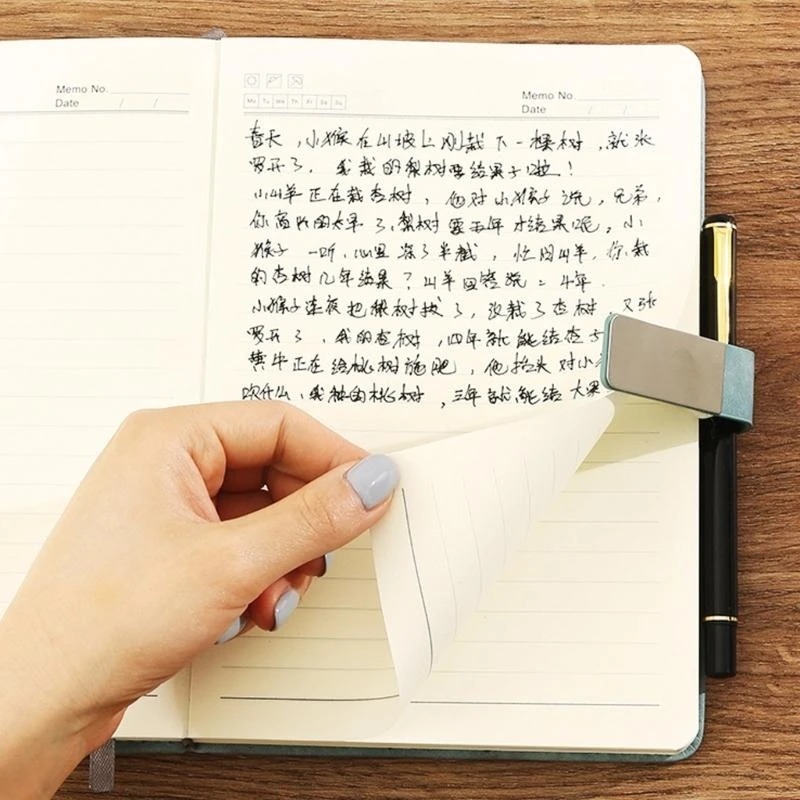 Memo No.
Date / /
Memo No.
Date / /
Mo Tu We Th Fr Sa Su
春天，小猴在山坡上刚栽下一棵树，就张
罗开了，我栽的梨树要结果子啦！
小山羊正在栽杏树，他对小猴子说，兄弟，
你高兴的太早了，梨树要五年才结果呢。小
猴子一听，心里凉了半截，忙问山羊，你栽
的杏树几年结果？山羊回答说：4年．
小猴子连夜把梨树拔了，改栽了杏树，又张
罗开了，我的杏树，四年就能结杏子
黄牛正在给桃树施肥，他抬头对小
吹什么，我种的桃树，三年就能结大果